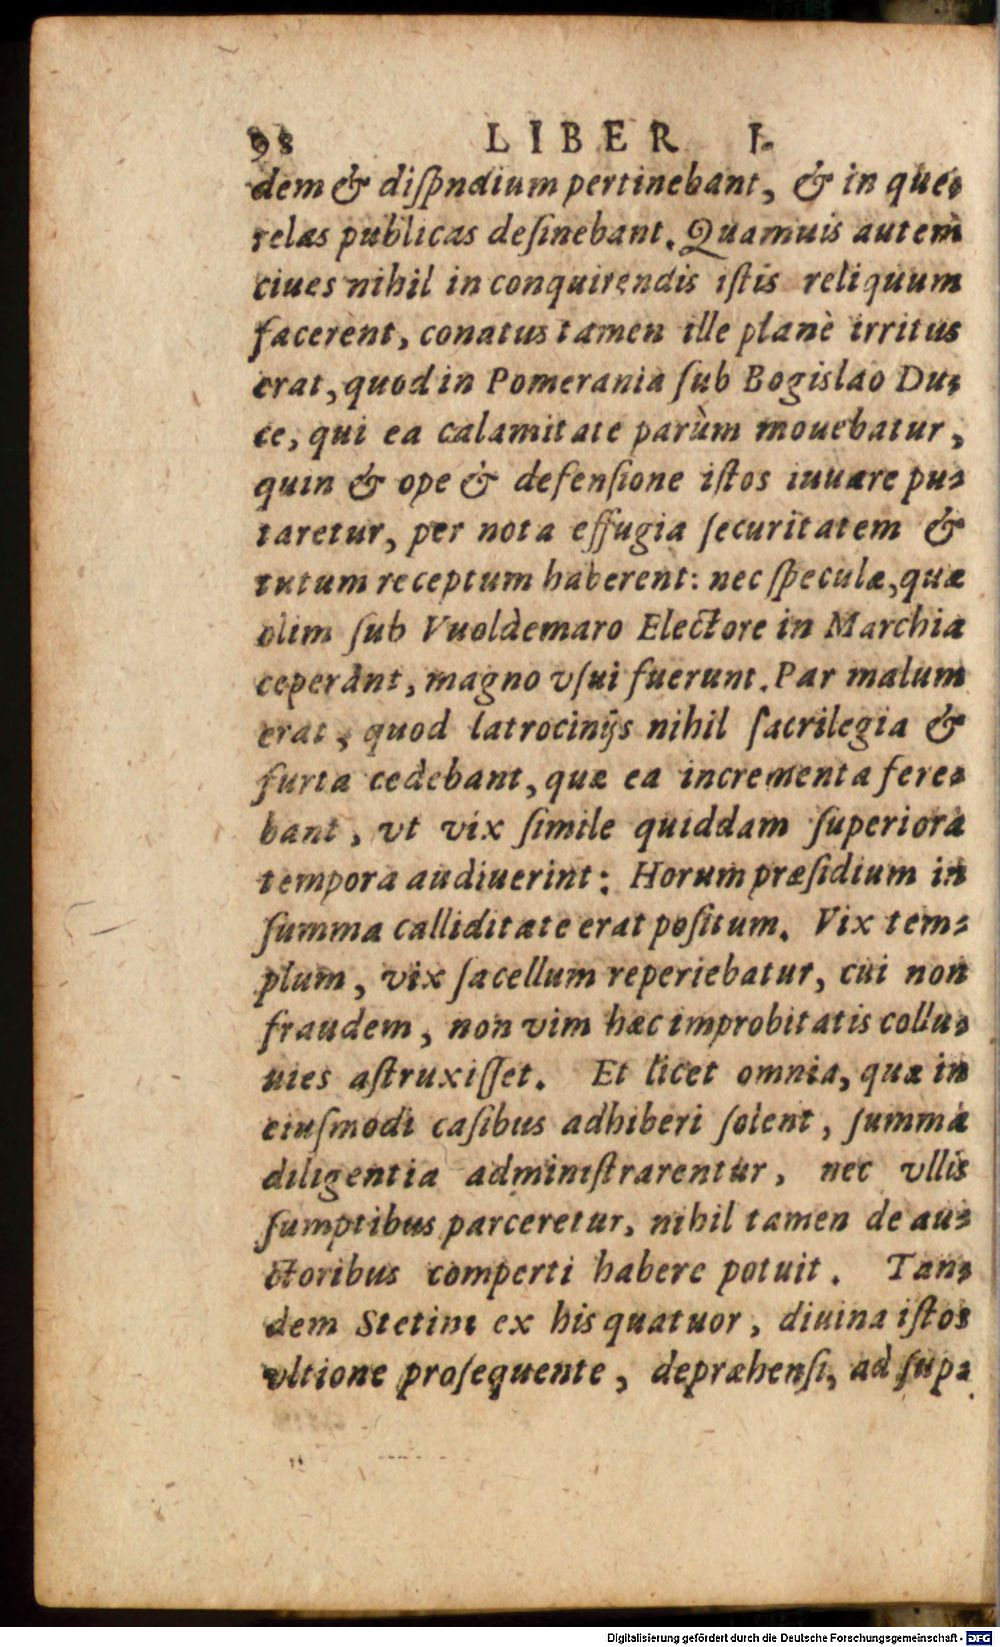 98 LIBER I.
dem & diſpndium pertinebant, & in que-
relas publicas deſinebant. Quamuis autem
ciues nihil in conquirendis iſtis reliquum
facerent, conatus tamen ille planè irritus
erat, quod in Pomerania ſub Bogislao Du-
ce, qui ea calamitate parùm mouebatur,
quin & ope & defenſione iſtos iuuare pu-
taretur, per nota effugia ſecuritatem &
tutum receptum haberent: nec ſpeculæ, quæ
olim ſub Vuoldemaro Electore in Marchia
ceperant, magno vſui fuerunt. Par malum
erat, quod latrocinijs nihil ſacrilegia &
furta cedebant, quæ ea incrementa fere-
bant, vt vix ſimile quiddam ſuperiora
tempora audiuerint: Horum præſidium in
ſumma calliditate erat poſitum. Vix tem-
plum, vix ſacellum reperiebatur, cui non
fraudem, non vim hæc improbitatis collu-
uies aſtruxiſſet. Et licet omnia, quæ in
eiuſmodi caſibus adhiberi ſolent, ſumma
diligentia adminiſtrarentur, nec vllis
ſumptibus parceretur, nihil tamen de au-
ctoribus comperti habere potuit. Tan-
dem Stetini ex his quatuor, diuina iſtos
vltione proſequente, depræhenſi, ad ſup-
Digitalisierung gefördert durch die Deutsche Forschungsgemeinschaft - DFG